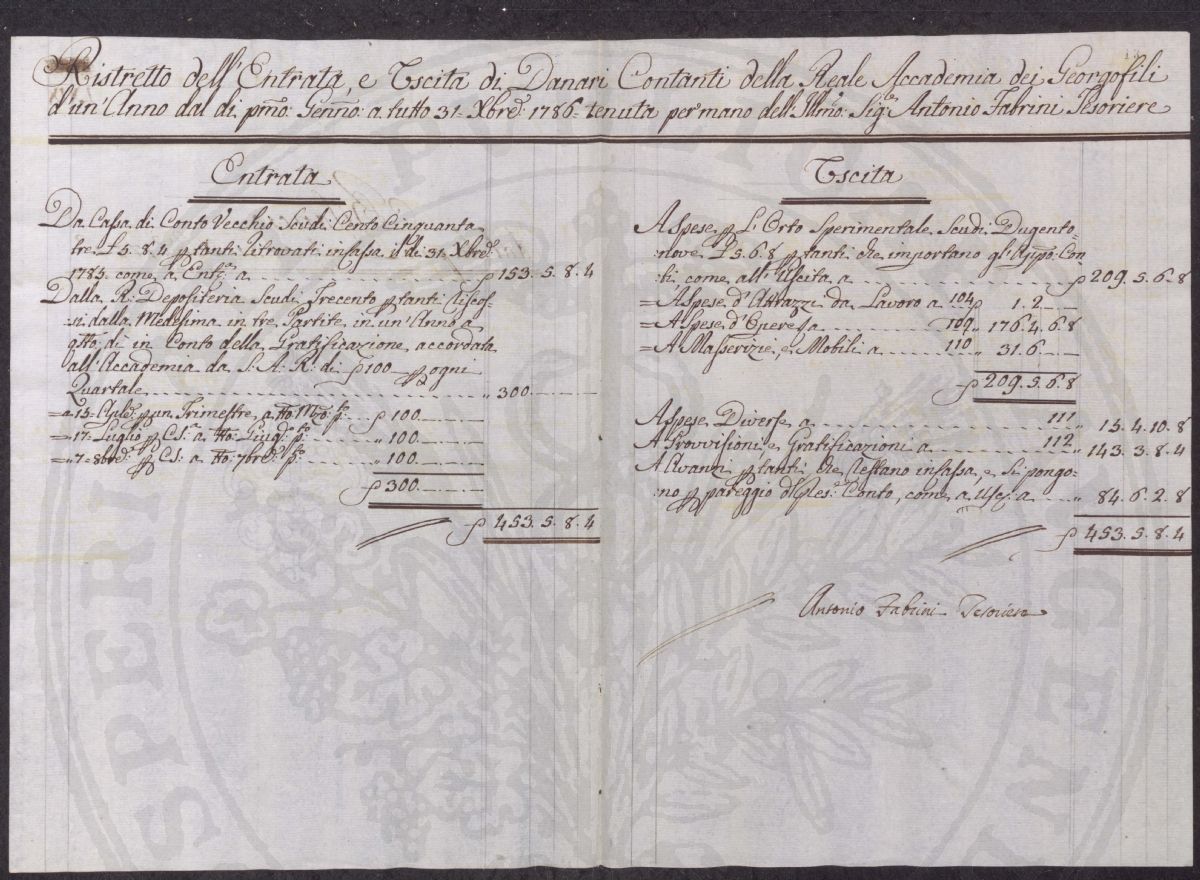 Ristretto dell'Entrata, e Uscita di Danari Contanti della Reale Accademia dei Georgofili
d'un'Anno dal di pmo: Genno: a tutto 31= Xbre: 1786= tenuta per mano dell'Illmo: Sigr: Antonio Fabrini Tesoriere
Entrata
Da Cassa di Conto Vecchio Scudi Cento Cinquanta
tre L 5. 8. 4 p tanti ritrovati in Cassa il di 31= Xbre:
1785. come a Enta: a 153. 5. 8. 4
Dalla R: Depositeria Scudi Trecento p tanti riscos=
si dalla Medesima in tre Partite in un'Anno a
qto: di in Conto della Gratificazione accordata
all'Accademia da S: A: R: di 100 p ogni
Quartale 300.
=a 15= Aple: p un Trimestre, a tto: Mzo: po: 100.
=17= Luglio p Cs: a tto: Giugo: po: 100.
=7= 8bre: p Cs: a tto: 7bre: po: 100.
300.
453. 5. 8. 4
Uscita
A Spese p L'Orto Sperimentale Scudi Dugento
nove L 5. 6. 8 p tanti che importano gl'Appo: Con
ti come all'Uscita a 209. 5. 6. 8
=A Spese d'Attrazzi da Lavoro a 104 1. 2
=A Spese d'Opere a 109 176. 4. 6. 8
=A Masserizie, e Mobili a 110 31. 6.
209. 5. 6. 8
A Spese Diverse a 111 15. 4. 10. 8
A Provvisioni e Gratificazioni a 112 143. 3. 8. 4
A Avanzi p tanti che restano in Cassa, e si pongo:
:no p pareggio di Pres: Conto, come a Usc: a 84. 6. 2. 8
453. 5. 8. 4
Antonio Fabrini Tesoriere
SPERI
PUBLICA